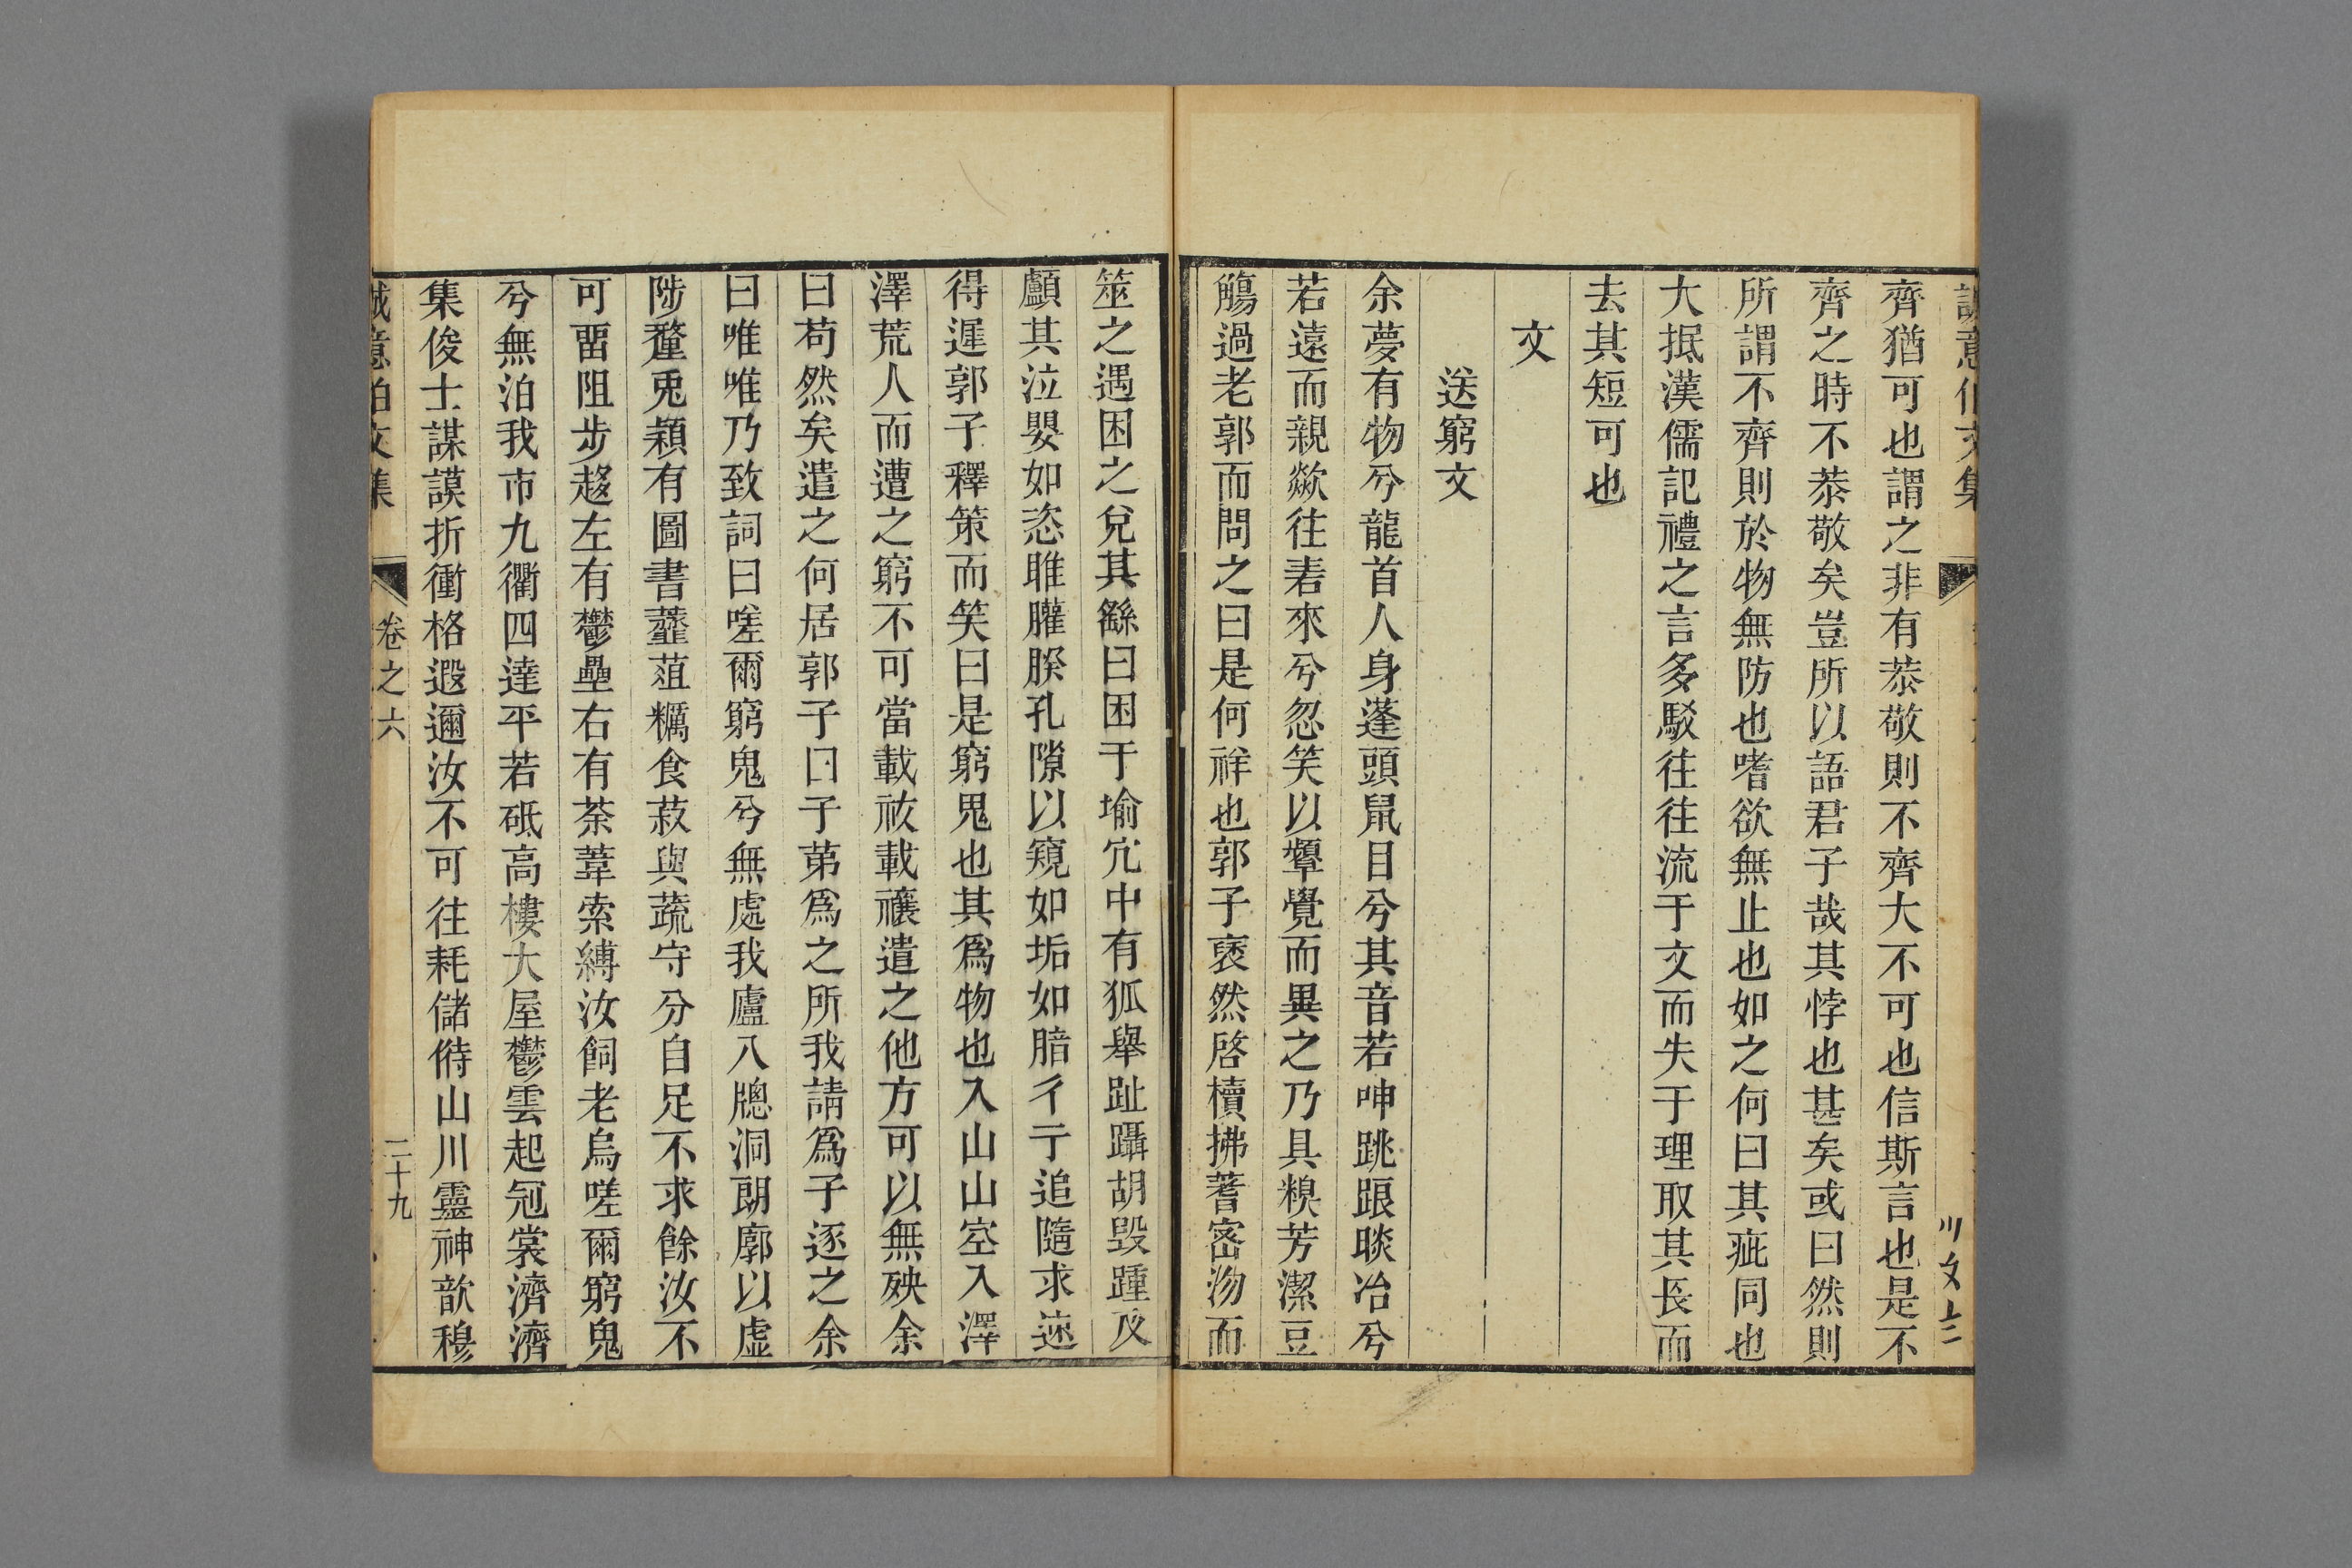 誠意伯文集
齊猶可也謂之非有恭敬則不齊大不可也信斯言也是不
齊之時不恭敬矣豈所以語君子哉其悖也甚矣或曰然則
所謂不齊則於物無防也嗜欲無止也如之何曰其疵同也
大抵漢儒記禮之言多駁往往流于文而失于理取其長而
去其短可也
文
送窮文
余夢有物兮龍首人身蓬頭鼠目兮其音若呻跳踉睒冶兮
若遠而親歘往砉來兮忽笑以顰覺而異之乃具糗芳潔豆
觴過老郭而問之曰是何祥也郭子裦然啓櫝拂蓍宻沕而
筮之遇困之兌其繇曰困于堬穴中有狐舉趾躡胡毀踵及
顱其泣嬰如恣睢臞朕孔隙以窺如垢如腤彳亍追隨求速
得遲郭子釋策而笑曰是窮鬼也其爲物也入山山空入澤
澤荒人而遭之窮不可當載祓載禳遣之他方可以無殃余
曰苟然矣遣之何居郭子曰子苐爲之所我請爲子逐之余
曰唯唯乃致詞曰嗟爾窮鬼兮無處我廬八牕洞朗廓以虛
陟氂兎穎有圖書虀葅糲食菽與蔬守分自足不求餘汝不
可畱阻步趍左有鬱壘右有荼葦索縛汝飼老烏嗟爾窮鬼
兮無泊我市九衢四達平若砥高樓大屋鬱雲起冠裳濟濟
集俊士謀謨折衝格遐邇汝不可往耗儲偫山川靈神歆穆
誠意伯文集
卷之六
二十九